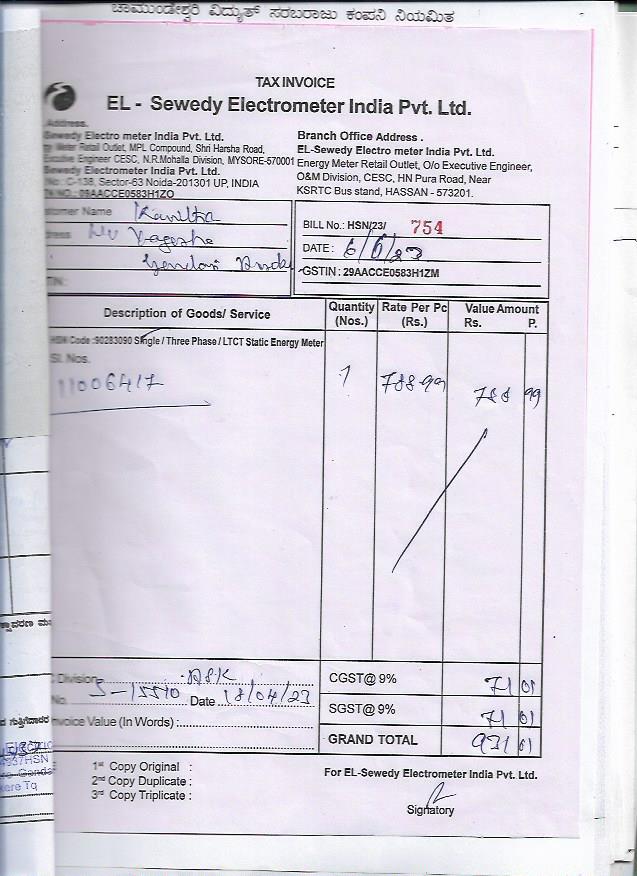 ಚಾಮುಂಡೇಶ್ವರಿ ವಿದ್ಯುತ್ ಸರಬರಾಜು ಕಂಪನಿ ನಿಯಮಿತ
TAX INVOICE
EL - Sewedy Electrometer India Pvt. Ltd.
Address.
Sewedy Electro meter India Pvt. Ltd.
Meter Retail Outlet, MPL Compound, Shri Harsha Road,
Engineer CESC, N.R.Mohalla Division, MYSORE-570001
Sewedy Electrometer India Pvt. Ltd.
C-138, Sector-63 Noida-201301 UP, INDIA
NO.: 09AACCE0583H1ZO
Branch Office Address .
EL-Sewedy Electro meter India Pvt. Ltd.
Energy Meter Retail Outlet, O/o Executive Engineer,
O&M Division, CESC, HN Pura Road, Near
KSRTC Bus stand, HASSAN - 573201.
tomer Name Kavitha
ress
TIN:
BILL No.: HSN/23/ 754
DATE : 6/6/23
GSTIN : 29AACCE0583H1ZM
Description of Goods/ Service Quantity (Nos.) Rate Per Pc (Rs.) Value Amount Rs. P.
HSN Code :90283090 Single / Three Phase / LTCT Static Energy Meter
Sl. Nos.
11006417 1 788-99 788 99
Division ASK
No. S-15510 Date 18/04/23
nvoice Value (In Words) :
CGST@ 9% 71 01
SGST@ 9% 71 01
GRAND TOTAL 931 01
1st Copy Original :
2nd Copy Duplicate :
3rd Copy Triplicate :
For EL-Sewedy Electrometer India Pvt. Ltd.
Signatory